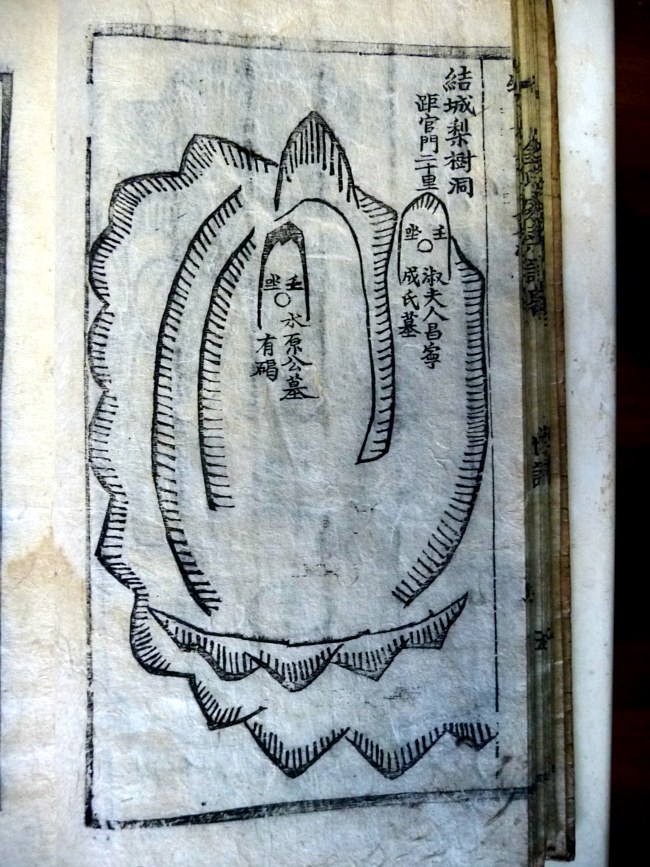 結城梨樹洞
距官門二十里
壬坐
淑夫人昌寧
成氏墓
壬坐
水原公墓
有碣